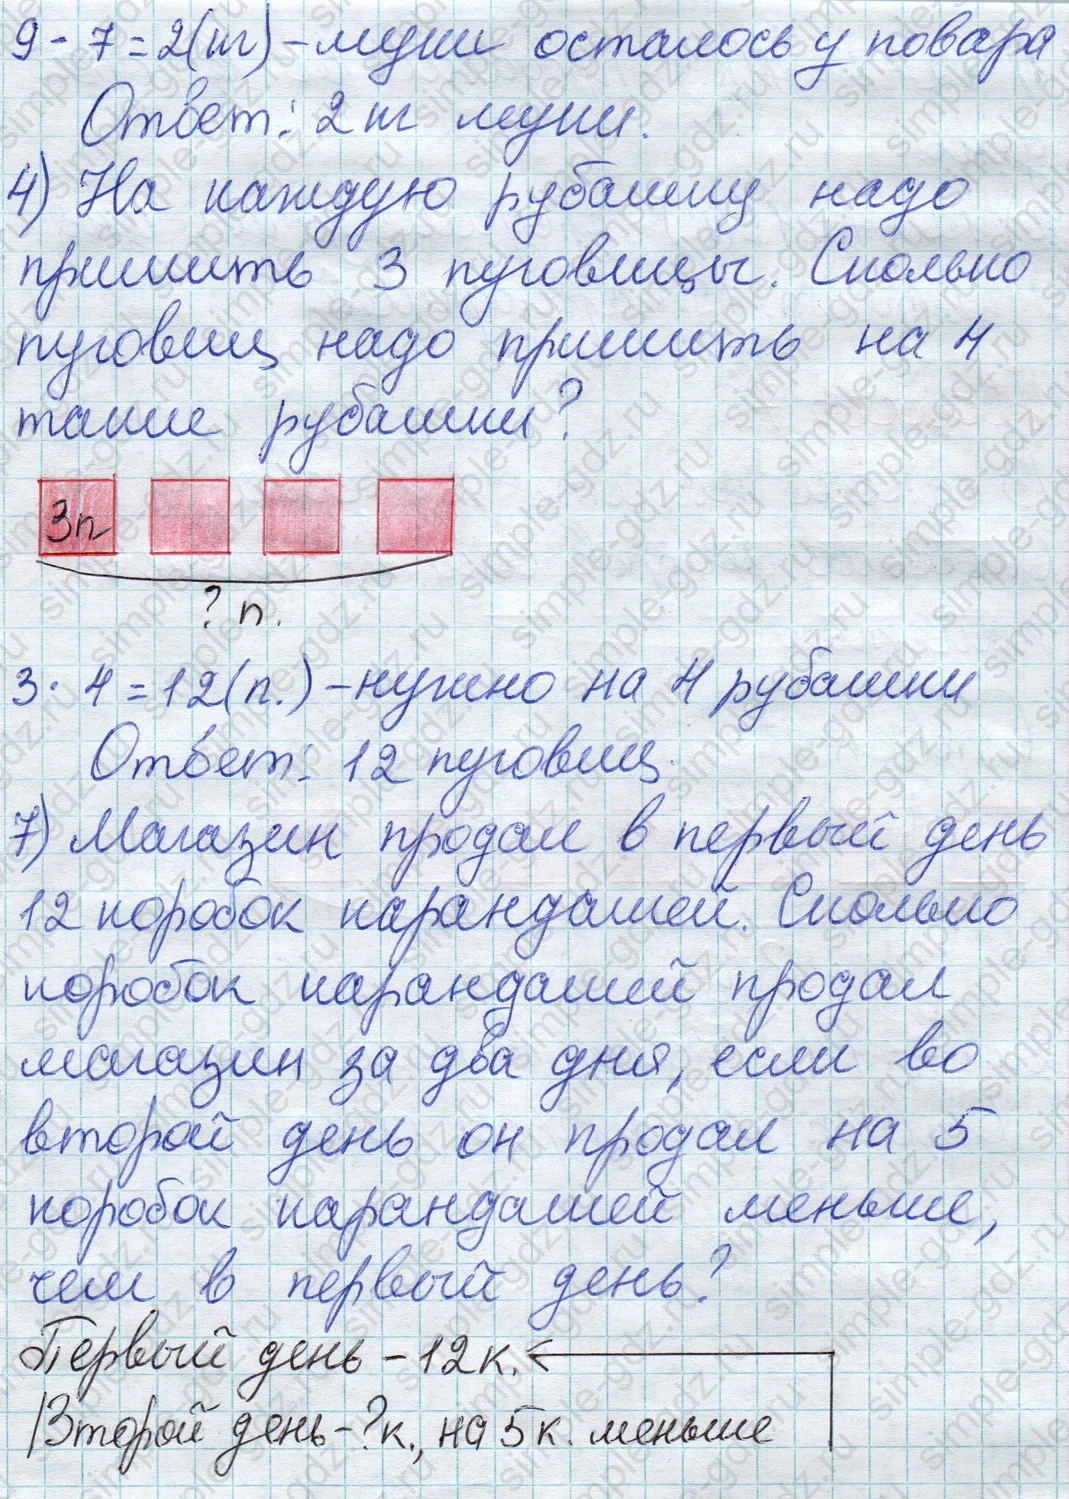 9 - 7 = 2(кг) - муки осталось у повара
Ответ: 2 кг муки.
4) На каждую рубашку надо
пришить 3 пуговицы. Сколько
пуговиц надо пришить на 4
такие рубашки?
3п
? п.
3 · 4 = 12(п.) - нужно на 4 рубашки
Ответ: 12 пуговиц.
7) Магазин продал в первый день
12 коробок карандашей. Сколько
коробок карандашей продал
магазин за два дня, если во
второй день он продал на 5
коробок карандашей меньше,
чем в первый день?
Первый день - 12 к.
Второй день - ? к., на 5 к. меньше
simple-gdz.ru